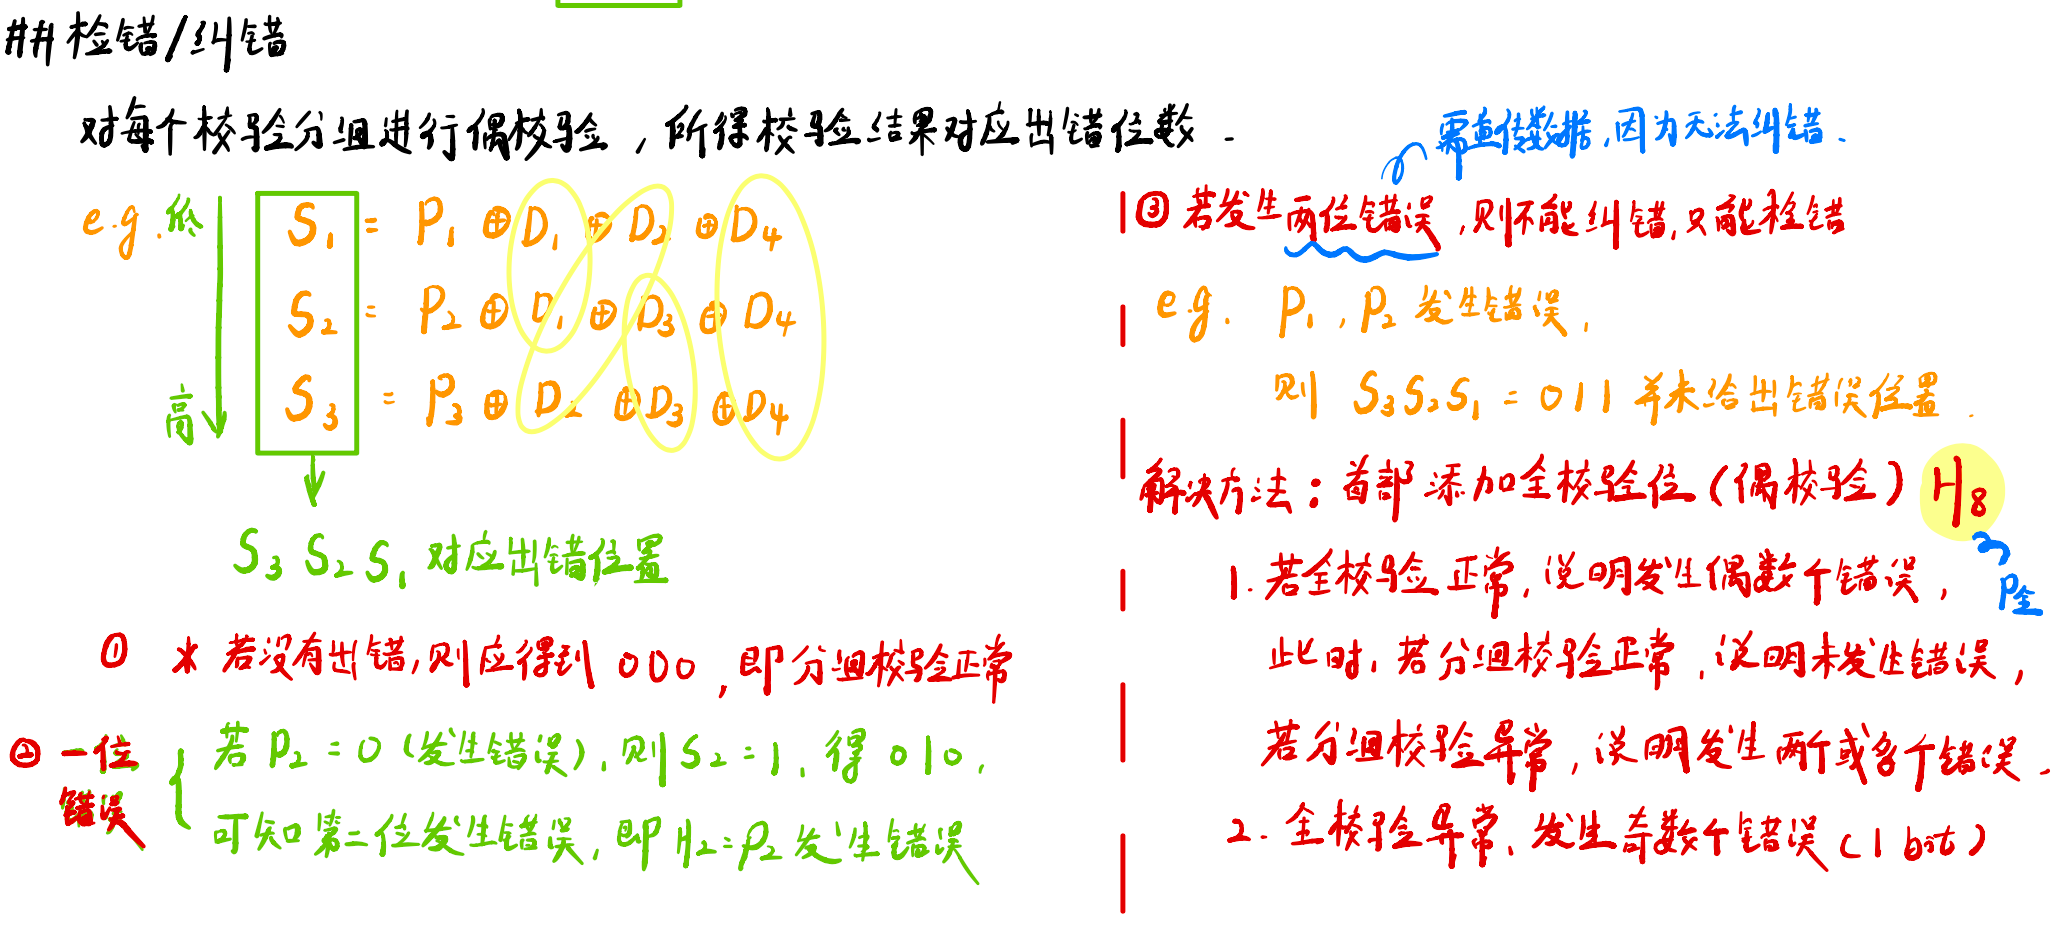 ## 检错/纠错
对每个校验分组进行偶校验，所得校验结果对应出错位数.
e.g. 低
高
S₁ = P₁ ⊕ D₁ ⊕ D₂ ⊕ D₄
S₂ = P₂ ⊕ D₁ ⊕ D₃ ⊕ D₄
S₃ = P₃ ⊕ D₂ ⊕ D₃ ⊕ D₄
S₃ S₂ S₁ 对应出错位置
① * 若没有出错,则应得到 000，即分组校验正常
② 一位
错误
若 P₂ = 0 (发生错误), 则 S₂ = 1, 得 010,
可知第二位发生错误, 即 H₂=P₂ 发生错误
需重传数据,因为无法纠错.
③ 若发生两位错误,则不能纠错,只能检错
e.g. P₁, P₂ 发生错误,
则 S₃S₂S₁ = 011 并未给出错误位置.
解决方法: 首部添加全校验位 (偶校验) H₈
P全
1. 若全校验正常, 说明发生偶数个错误,
此时, 若分组校验正常, 说明未发生错误,
若分组校验异常, 说明发生两个或多个错误.
2. 全校验异常, 发生奇数个错误 (1 bit)